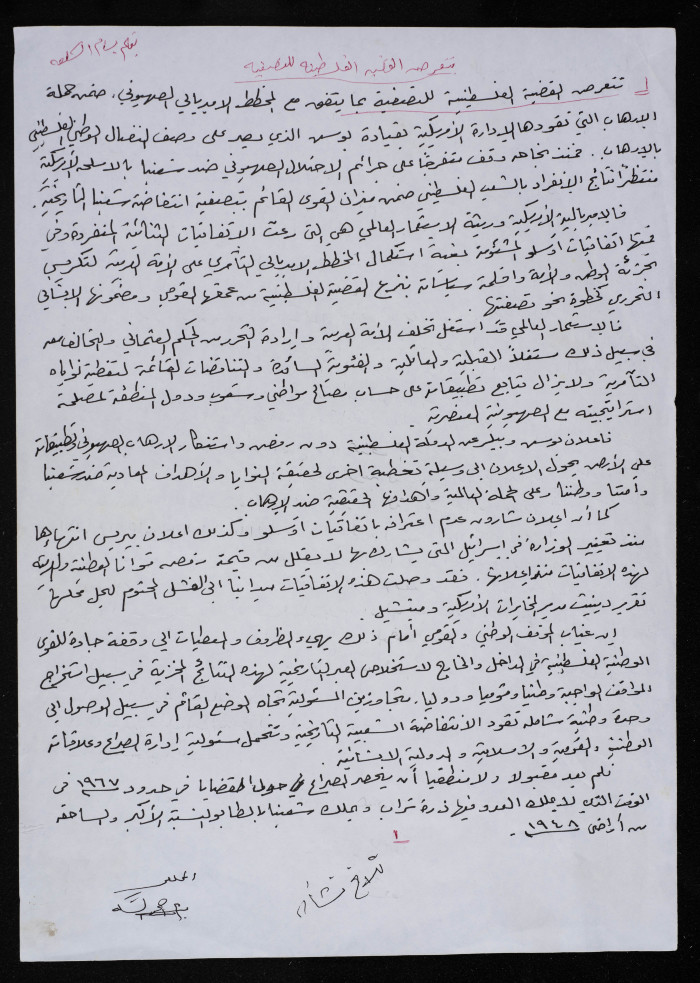 بقلم بسام الشكعه
تتعرض القضية الفلسطينية للتصفية
تتعرض القضية الفلسطينية للتصفية بما يتفق مع المخطط الامبريالي الصهيوني، ضمن حملة
الارهاب التي تقودها الإدارة الأمريكية بقيادة بوسن الذي يصر على وصف النضال الوطني الفلسطيني
بالإرهاب. فمنذ نجاحه وقف متفرجًا على جرائم الاحتلال الصهيوني ضد شعبنا بالاسلحة الأمريكية
منتظرًا نتائج الانفراد بالشعب الفلسطيني ضمن ميزان القوى القائم بتصفية انتفاضة شعبنا التاريخية.
فالامبريالية الأمريكية وريثة الاستعمار العالمي هي التي رعت الاتفاقيات الثنائية المنفردة وفي
قمتها اتفاقيات أوسلو المشئومة بغية استكمال المخطط الامبريالي التآمري على الأمة العربية لتكريس
تجزئة الوطن والأمة واقلمة سياساته بنزع القضية الفلسطينية من عمقها القومي ومضمونها الانساني
التحرري كخطوة نحو تصفيتها.
فالاستعمار العالمي قد استغل تخلف الأمة العربية وإرادة التحرر من الحكم العثماني والتحالف معه
في سبيل ذلك مستغلاً القبلية والعائلية والفئوية السائدة والتناقضات القائمة لتغطية نواياه
التآمرية ولا يزال يتابع تطبيقاته على حساب مصالح مواطني وشعوب ودول المنطقة لمصلحة
استراتيجيته مع الصهيونية العنصرية.
فاعلان بوسن وبلير عن الدولة الفلسطينية دون رفض واستنكار الارهاب الصهيوني وتطبيقاته
على الأرض يحول الاعلان الى وسيلة تغطية اخرى لحقيقة النوايا والأهداف المعادية ضد شعبنا
وأمتنا ووطننا وعلى الحملة العالمية وأهدافها الحقيقية ضد الإرهاب.
كما أن اعلان شارون عدم اعترافه باتفاقيات أوسلو وكذلك اعلان بيريس انتهاءها
منذ تغيير الوزارة في اسرائيل التي يشارك بها لا يقلل من قيمة رفض قوانا الوطنية والعربية
لهذه الاتفاقيات منذ اعلانها. فقد وصلت هذه الاتفاقيات ميدانيا الى الفشل المحتوم ليحل محلها
تقرير تينت مدير المخابرات الأمريكية وميتشيل.
إن غياب الموقف الوطني والقومي أمام ذلك يهيء الظروف والمعطيات الى وقفة جادة للقوى
الوطنية الفلسطينية في الداخل والخارج لاستخلاص العبر التاريخية لهذه النتائج المخزية في سبيل استخراج
المواقف الواجبة وطنيا وقوميا ودوليا. متجاوزين المسئولية تجاه الوضع القائم في سبيل الوصول الى
وحدة وطنية شاملة تقود الانتفاضة الشعبية التاريخية وتتحمل مسئولية إدارة الصراع وعلاقاته
الوطنية والقومية والاسلامية والدولية الانسانية.
فلم يعد مقبولا ولا منطقيا أن ينحصر الصراع حول القضايا في حدود ١٩٦٧ في
الوقت الذي لا يملك العدو فيها ذرة تراب ويملك شعبنا بالطابو النسبة الأكبر والساحقة
من أراضي ١٩٤٨.
١